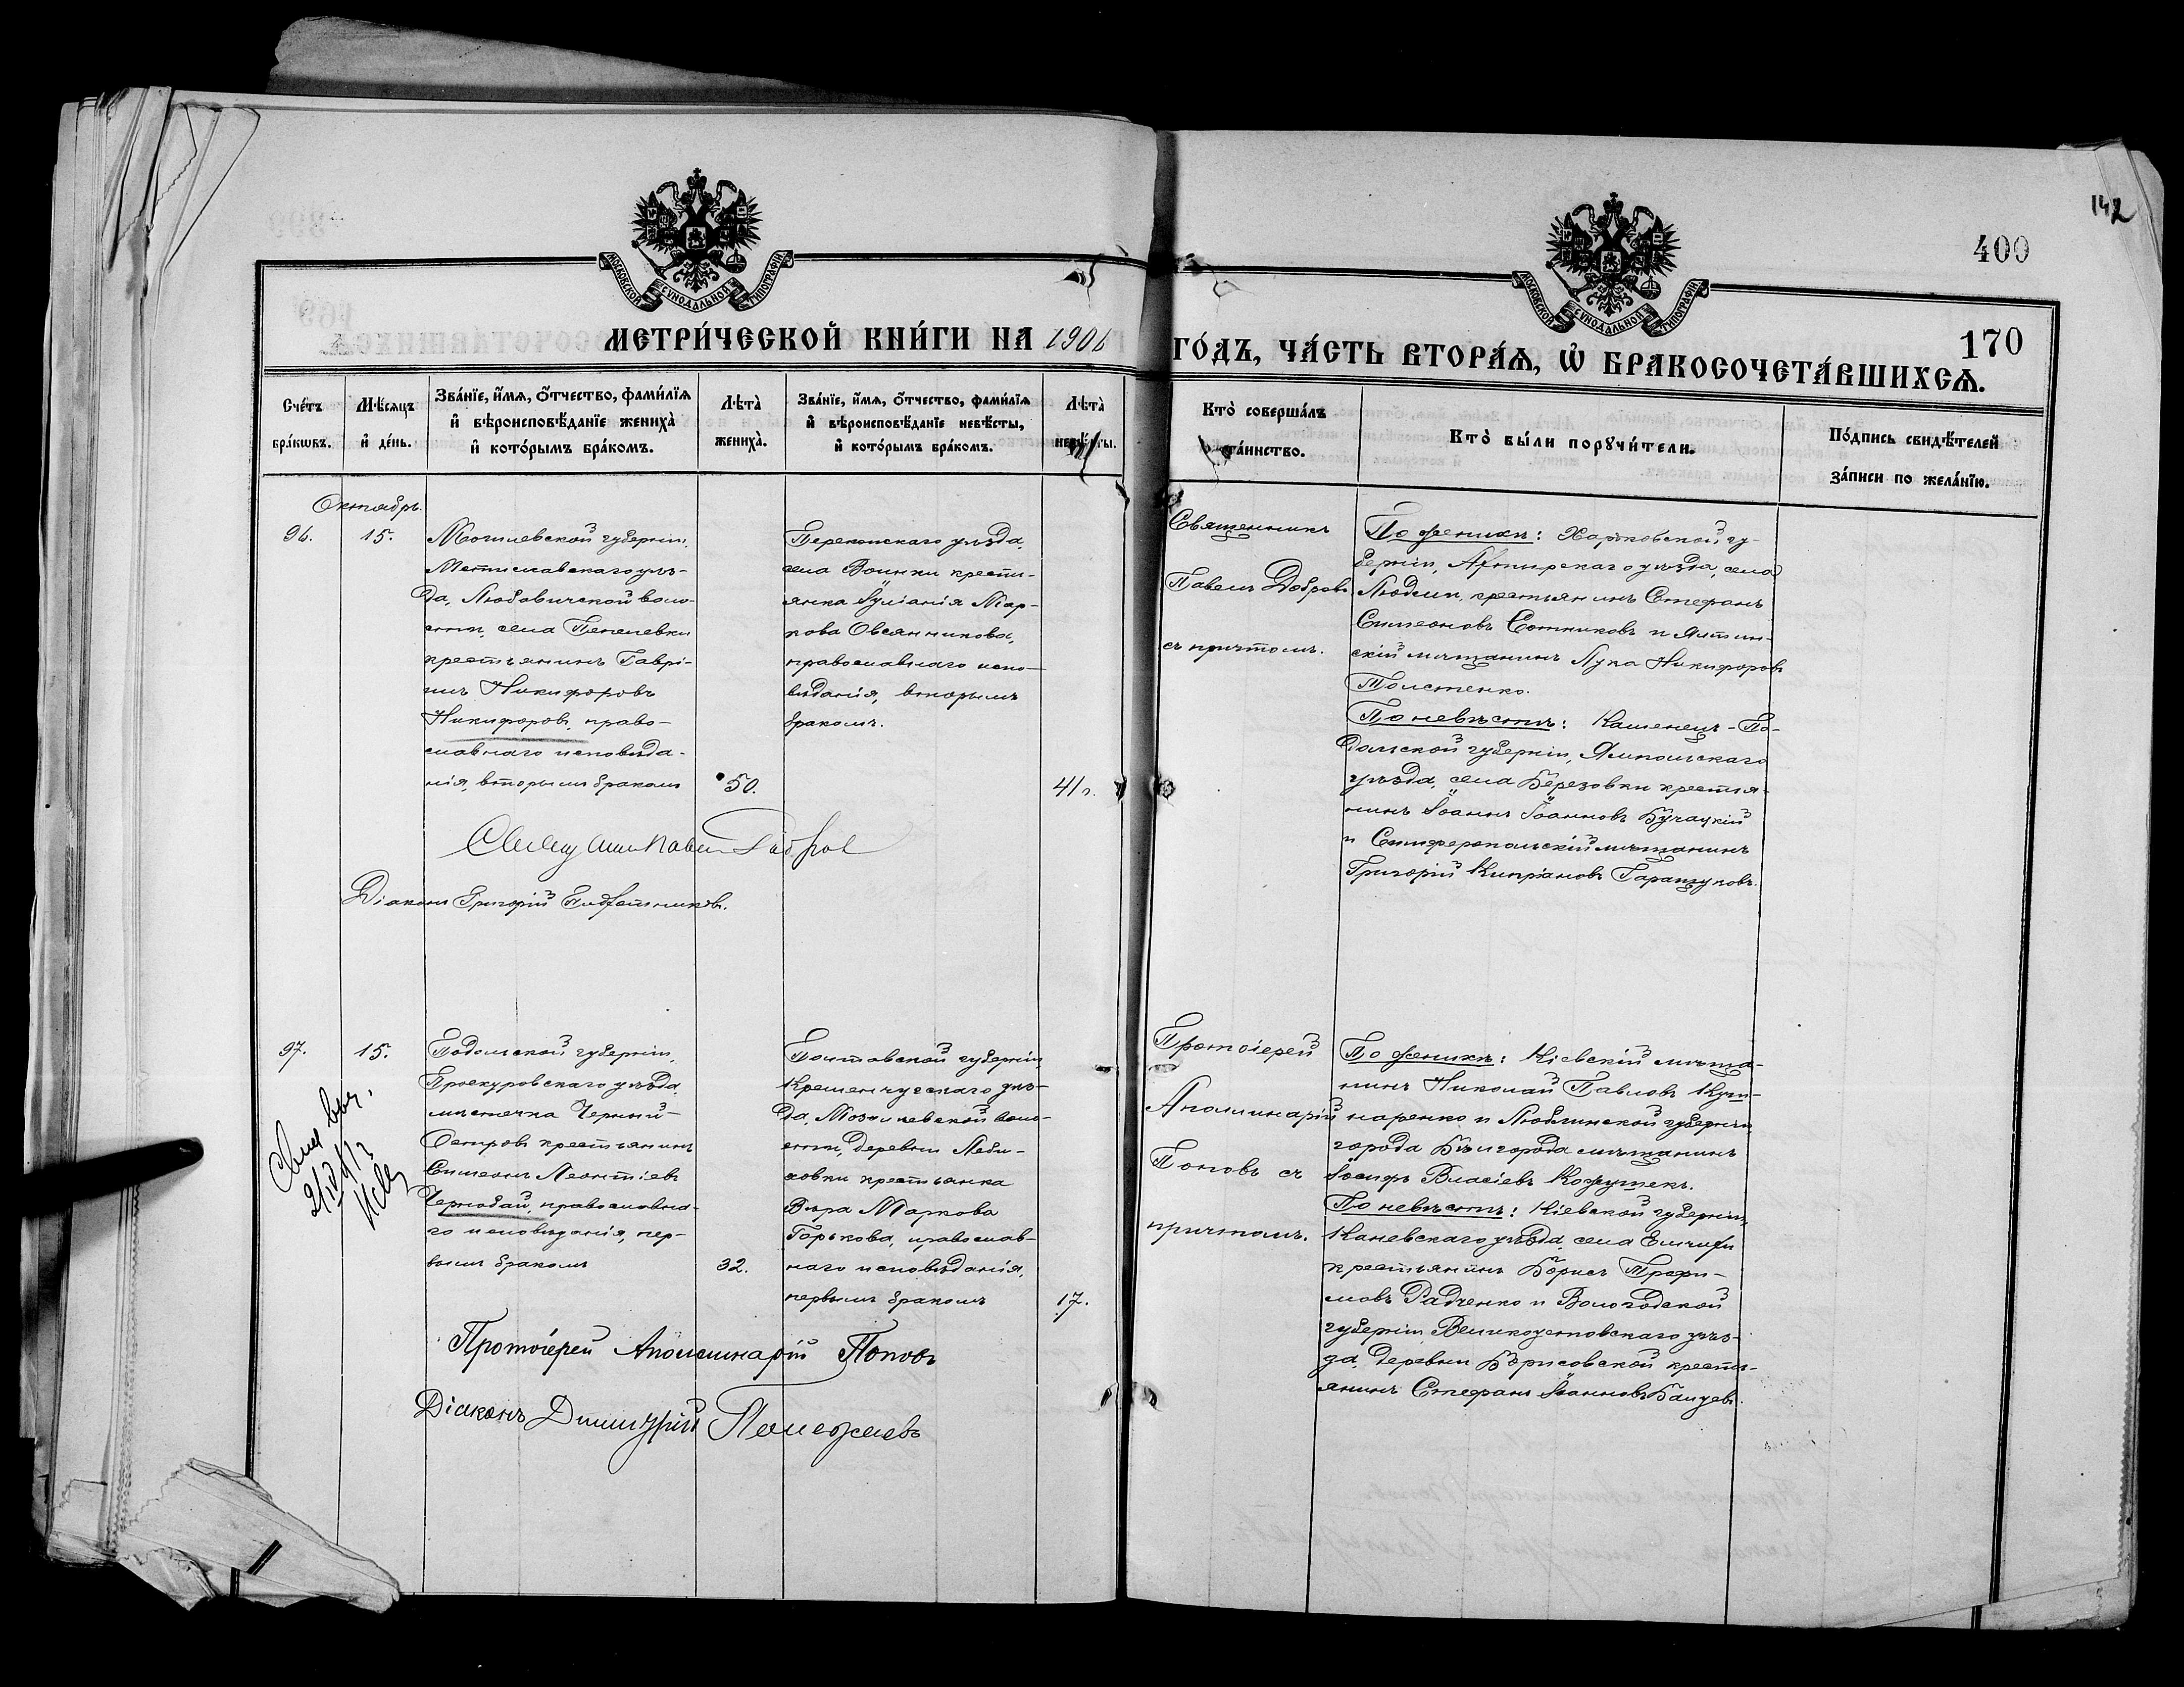 142
400
170
МОСКОВСКОЙ СѴНОДАЛЬНОЙ ТИПОГРАФІИ
МОСКОВСКОЙ СѴНОДАЛЬНОЙ ТИПОГРАФІИ
МЕТРИ́ЧЕСКОЙ КНИ́ГИ НА 1906 ГО́ДЪ, ЧА́СТЬ ВТОРА́Ѧ, Ѽ БРАКОСОЧЕТА́ВШИХСѦ.
Сче́тъ бра́кωвъ.
Мѣ́сяцъ и҆ де́нь.
Зва́нїе, и҆́мѧ, ѻ҆́тчество, фами́лїѧ
и҆ вѣроисповѣ́данїе жениха̀
и҆ кото́рымъ бра́комъ.
Лѣта̀ жениха̀.
Зва́нїе, и҆́мѧ, ѻ҆́тчество, фами́лїѧ
и҆ вѣроисповѣ́данїе невѣ́сты,
и҆ кото́рымъ бра́комъ.
Лѣта̀ невѣ́сты.
Кто̀ соверша́лъ
та́инство.
Кто̀ бы́ли порꙋчи́тели.
По́дпись свидѣ́телей
за́писи по жела́нїю.
Октябрь.
96.
15.
Могилевской губерніи,
Мстиславскаго уѣз-
да, Любавичской воло-
сти, села
крестьянинъ Гаврі-
илъ Никифоровъ
Никифоровъ, право-
славнаго исповѣда-
нія, вторымъ бракомъ
50.
Перекопскаго уѣзда,
села Воинки крестья-
янка Іуліанія Мар-
кова Овсянникова,
православнаго испо-
вѣданія, вторымъ
бракомъ.
41 г.
Священникъ
Павелъ Добровъ
съ причтомъ.
По женихѣ: Харьковской гу-
берніи, Ахтырскаго уѣзда, села
крестьянинъ Стефанъ
Симеоновъ Сотниковъ и Ялтин-
скій мѣщанинъ Лука Никифоровъ
Толстенко.
По невѣстѣ: Каменец-По-
дольской губерніи, Ямпольскаго
уѣзда, села Березовки крестья-
нинъ Іоаннъ Іоанновъ Бучацкій
и Симферопольскій мѣщанинъ
Григорій Кипріановъ
Священникъ Павелъ Добровъ
Діаконъ Григорій
97.
15.
Подольской губерніи,
Проскуровскаго уѣзда,
мѣстечка Черный-
Островъ крестьянинъ
Симеонъ Леонтіевъ
Чернобай, православна-
го исповѣданія, пер-
вымъ бракомъ
32.
Полтавской губерніи,
Кременчугскаго уѣз-
да, Мозолеевской воло-
сти, деревни Леби-
ховки крестьянка
Вѣра Маркова
Горькова, православ-
наго исповѣданія,
первымъ бракомъ
17.
Протоіерей
Аполлинарій
Поповъ съ
причтомъ.
По женихѣ: Кіевскій мѣща-
нинъ Николай Павловъ Куш-
наренко и Люблинской губерніи,
города Бѣлгорода мѣщанинъ
Іосифъ Власіевъ Кожушекъ.
По невѣстѣ: Кіевской губерніи,
Каневскаго уѣзда, села Емчихи
крестьянинъ Борисъ Трофи-
мовъ Радченко и Вологодской
губерніи, Великоустюгскаго уѣз-
да, деревни Борисовской кресть-
янинъ Стефанъ Іоанновъ
Протоіерей Аполлинарій Поповъ
Діаконъ Димитрій